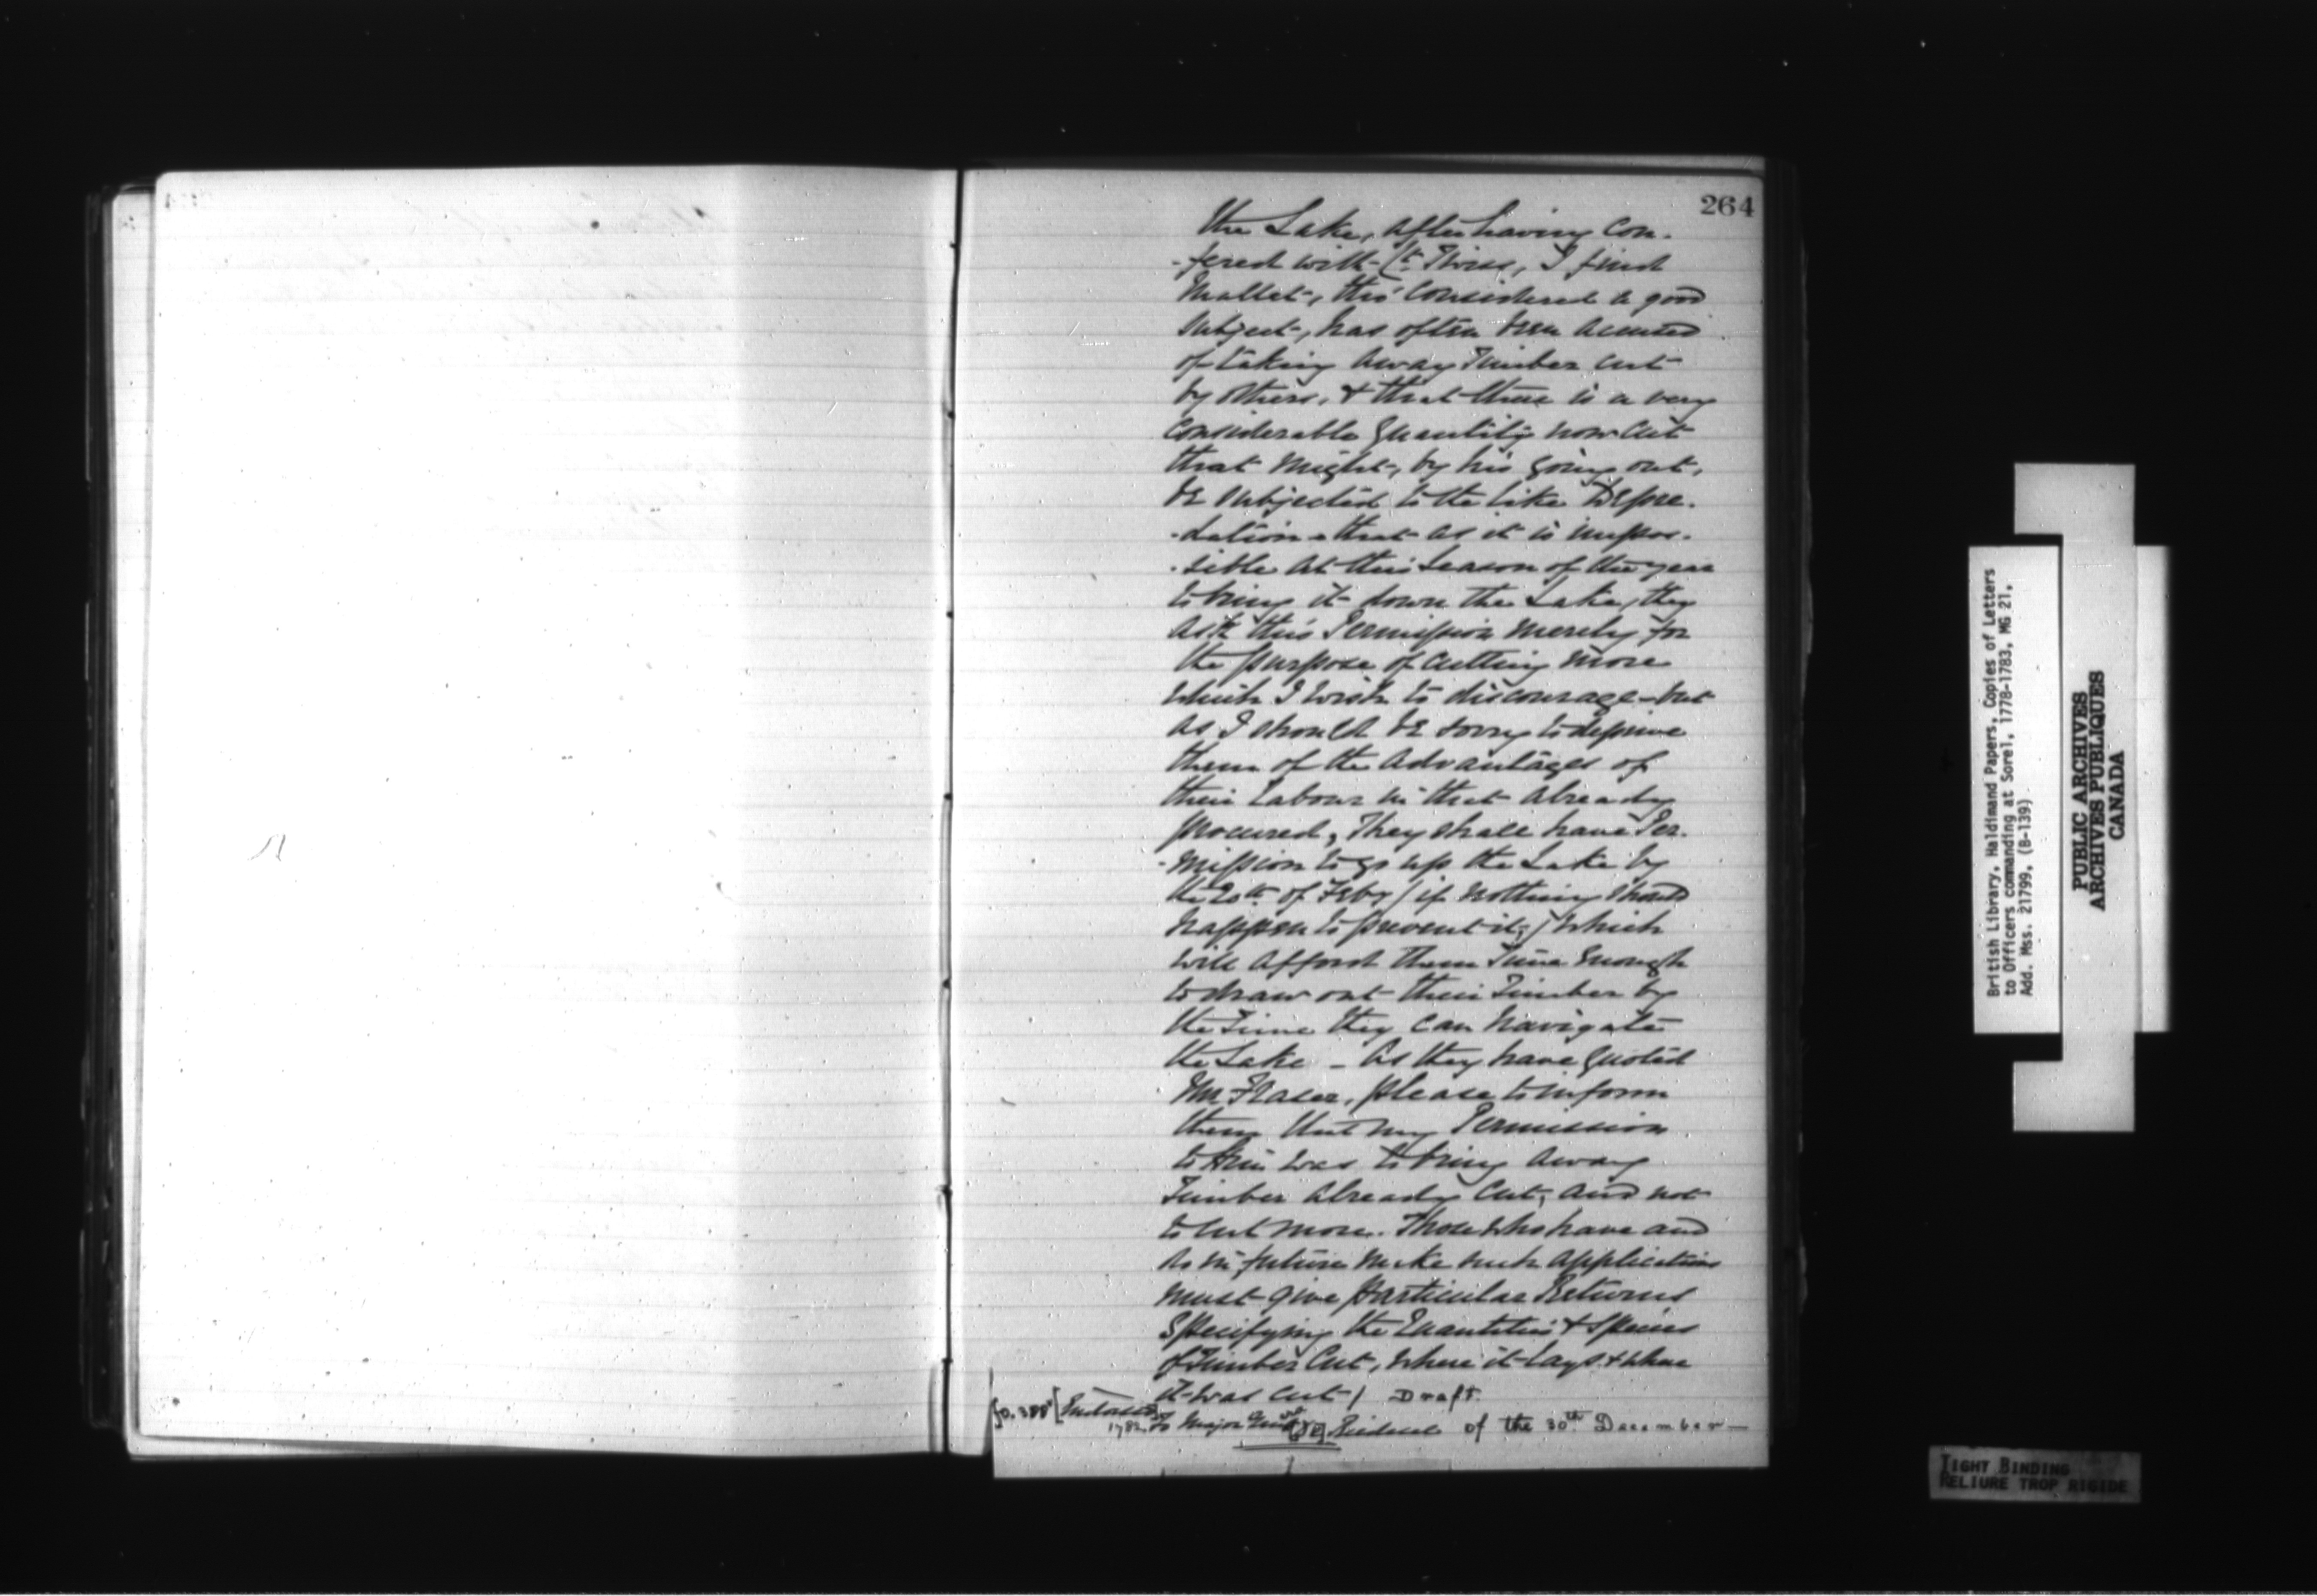 264
the Lake, after having Con-
-fered with Ct. Twiss, I find
Mallet, tho' Considered a good
Subject, has often been accused
of taking away Timber cut
by others, & that there is a very
Considerable Quantity now Cut
that might, by his going out,
be subjected to the like Depre-
-dation - that as it is impos-
-sible at this Season of the year
to bring it down the Lake, they
ask this Permission merely for
the purpose of cutting more
which I wish to discourage - but
as I should be sorry to deprive
them of the advantages of
their Labour in that already
procured, They shall have Per-
-mission to go up the Lake by
the 20th of Febr / if nothing should
happen to prevent it, / which
will afford them Time Enough
to draw out their Timber by
the Time they can Navigate
the Lake - As they have quoted
Mr. Fraser, please to inform
them that my Permission
to him was to bring away
Timber already Cut, and not
to cut more. Those who have and
do in future make such applications
must give particular Returns
Specifying the Quantities & Species
of Timber Cut, where it lays & when
it was cut / Draft.
[Endorsed
1782. To Major Genl De Riedesel of the 30th December -
British Library, Haldimand Papers, Copies of Letters
to Officers commanding at Sorel, 1778-1783, MG 21,
Add. Mss. 21799, (B-139)
PUBLIC ARCHIVES
ARCHIVES PUBLIQUES
CANADA
TIGHT BINDING
RELIURE TROP RIGIDE